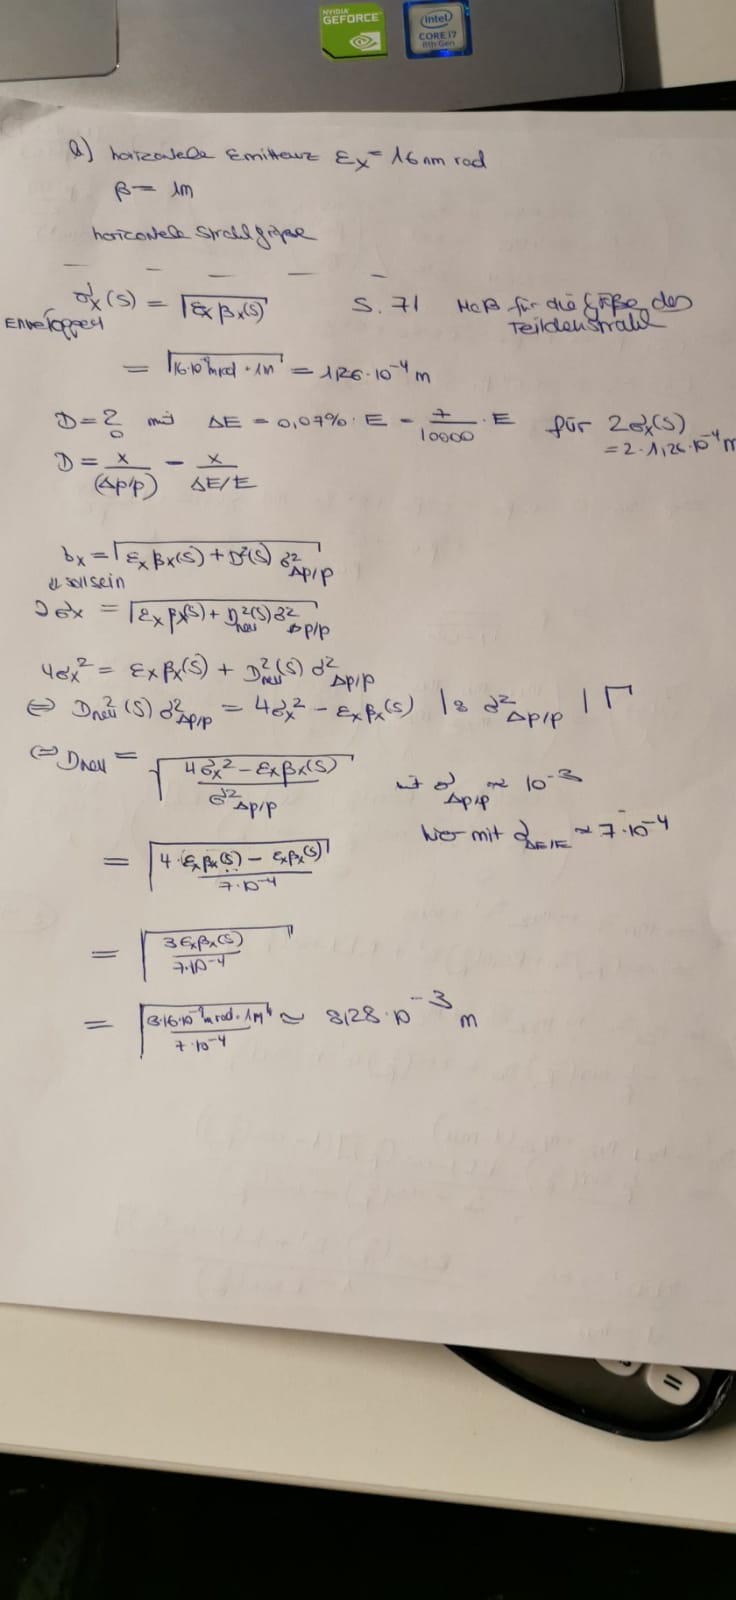 NVIDIA
GEFORCE
intel
CORE i7
8th Gen
b) horizontale Emittanz εx = 16 nm rad
β = 1m
horizontale Strahlgröße
σx(s) = √(εx βx(s)) S. 71 Maß für die Größe des
Enveloppen Teilchenstrahl
= √(16·10⁻⁹ m rad · 1m) = 1,26·10⁻⁴ m
D = ? mit ΔE = 0,07% · E = 7/10000 · E für 2σx(s)
= 2·1,26·10⁻⁴ m
D = x/(Δp/p) = x/ΔE/E
σx = √(εx βx(s) + D²(s) σ²Δp/p)
⇓ soll sein
2σx = √(εx βx(s) + D²neu(s) σ²Δp/p)
4σx² = εx βx(s) + D²neu(s) σ²Δp/p
⇔ D²neu(s) σ²Δp/p = 4σx² − εx βx(s) |: σ²Δp/p | √
⇔ Dneu = √((4σx² − εx βx(s))/σ²Δp/p) mit σΔp/p ≈ 10⁻³
hier mit σΔE/E ≈ 7·10⁻⁴
= √((4·εx βx(s) − εx βx(s))/7·10⁻⁴)
= √(3εx βx(s)/7·10⁻⁴)
= √(3·16·10⁻⁹ m rad · 1m/7·10⁻⁴) ≈ 8,28·10⁻³ m